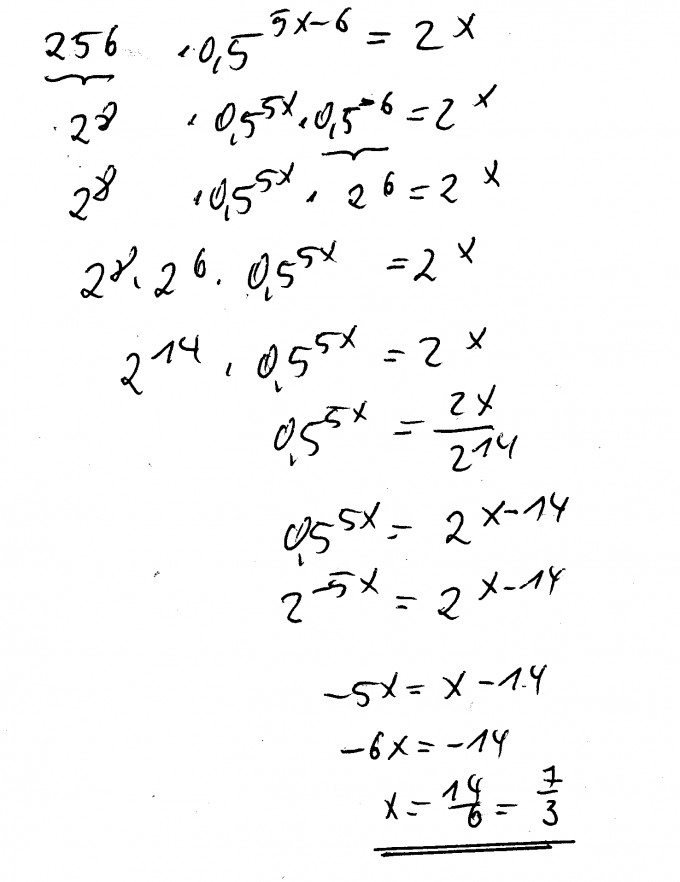 256 · 0,5^(5x-6) = 2^x
2^8 · 0,5^(5x) · 0,5^(-6) = 2^x
2^8 · 0,5^(5x) · 2^6 = 2^x
2^8 · 2^6 · 0,5^(5x) = 2^x
2^14 · 0,5^(5x) = 2^x
0,5^(5x) = 2^x / 2^14
0,5^(5x) = 2^(x-14)
2^(-5x) = 2^(x-14)
-5x = x - 14
-6x = -14
x = 14/6 = 7/3